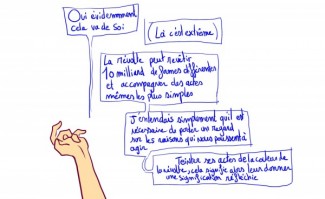 Oui évidemment
cela va de soi
(Là c'est extrême)
La révolte peut revêtir
10 milliard de formes différentes
et accompagner des actes
mêmes les plus simples
J'entendais simplement qu'il est
nécessaire de porter un regard
sur les raisons qui nous poussent à
agir
Teinter ses actes de la couleur de
la révolte, cela signifie alors leur donner
une signification réfléchie